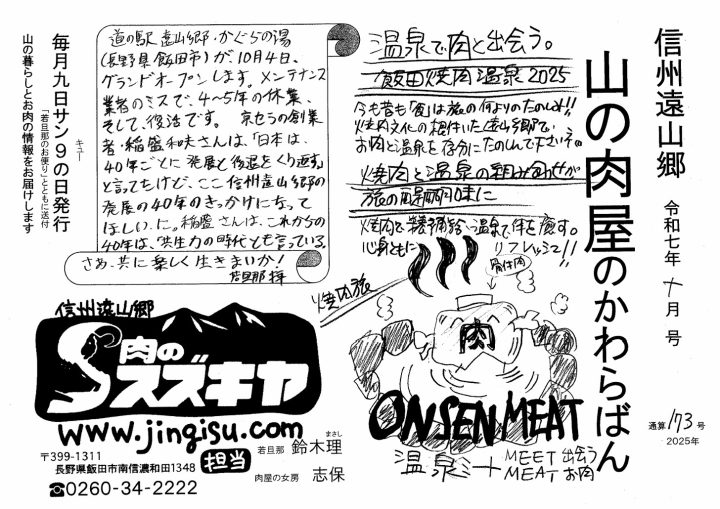 信州遠山郷
令和七年十月号
山の肉屋のかわらばん
通算173号
2025年
温泉で肉と出会う。
飯田焼肉温泉2025
今も昔も「食」は旅の何よりのたのしみ!!
焼肉文化の根付いた遠山郷で、
お肉と温泉を存分にたのしんで下さい。
焼肉と温泉の組み合わせが
旅の醍醐味に
焼肉で精補給、温泉で体を癒す。
心身ともにリフレッシュ!!
骨付肉
焼肉旅
肉
ONSEN MEAT
温泉ミート
MEET 出会う
MEAT お肉
道の駅 遠山郷・かぐらの湯
(長野県飯田市)が、10月4日、
グランドオープンします。メンテナンス
業者のミスで、4〜5年の休業、
そして、復活です。 京セラの創業
者・稲盛和夫さんは、「日本は、
40年ごとに発展と後退をくり返す」
と言ってたけど、ここ信州遠山郷の
発展の40年のきっかけになって
ほしいに。稲盛さんは、これからの
40年は、“共生力の時代”とも言っている。
さあ、共に楽しく生きまいか!
若旦那 拝
毎月九日サン9の日発行
キュー
「若旦那のお便り」とともに送付
山の暮らしとお肉の情報をお届けします
信州遠山郷
肉の
スズキヤ
www.jingisu.com
〒399-1311
長野県飯田市南信濃和田1348
☎0260-34-2222
担当
若旦那 鈴木理
まさし
肉屋の女房 志保